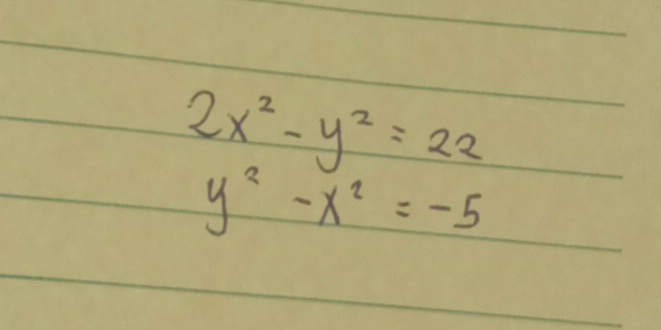 2x² - y² = 22
y² - x² = -5